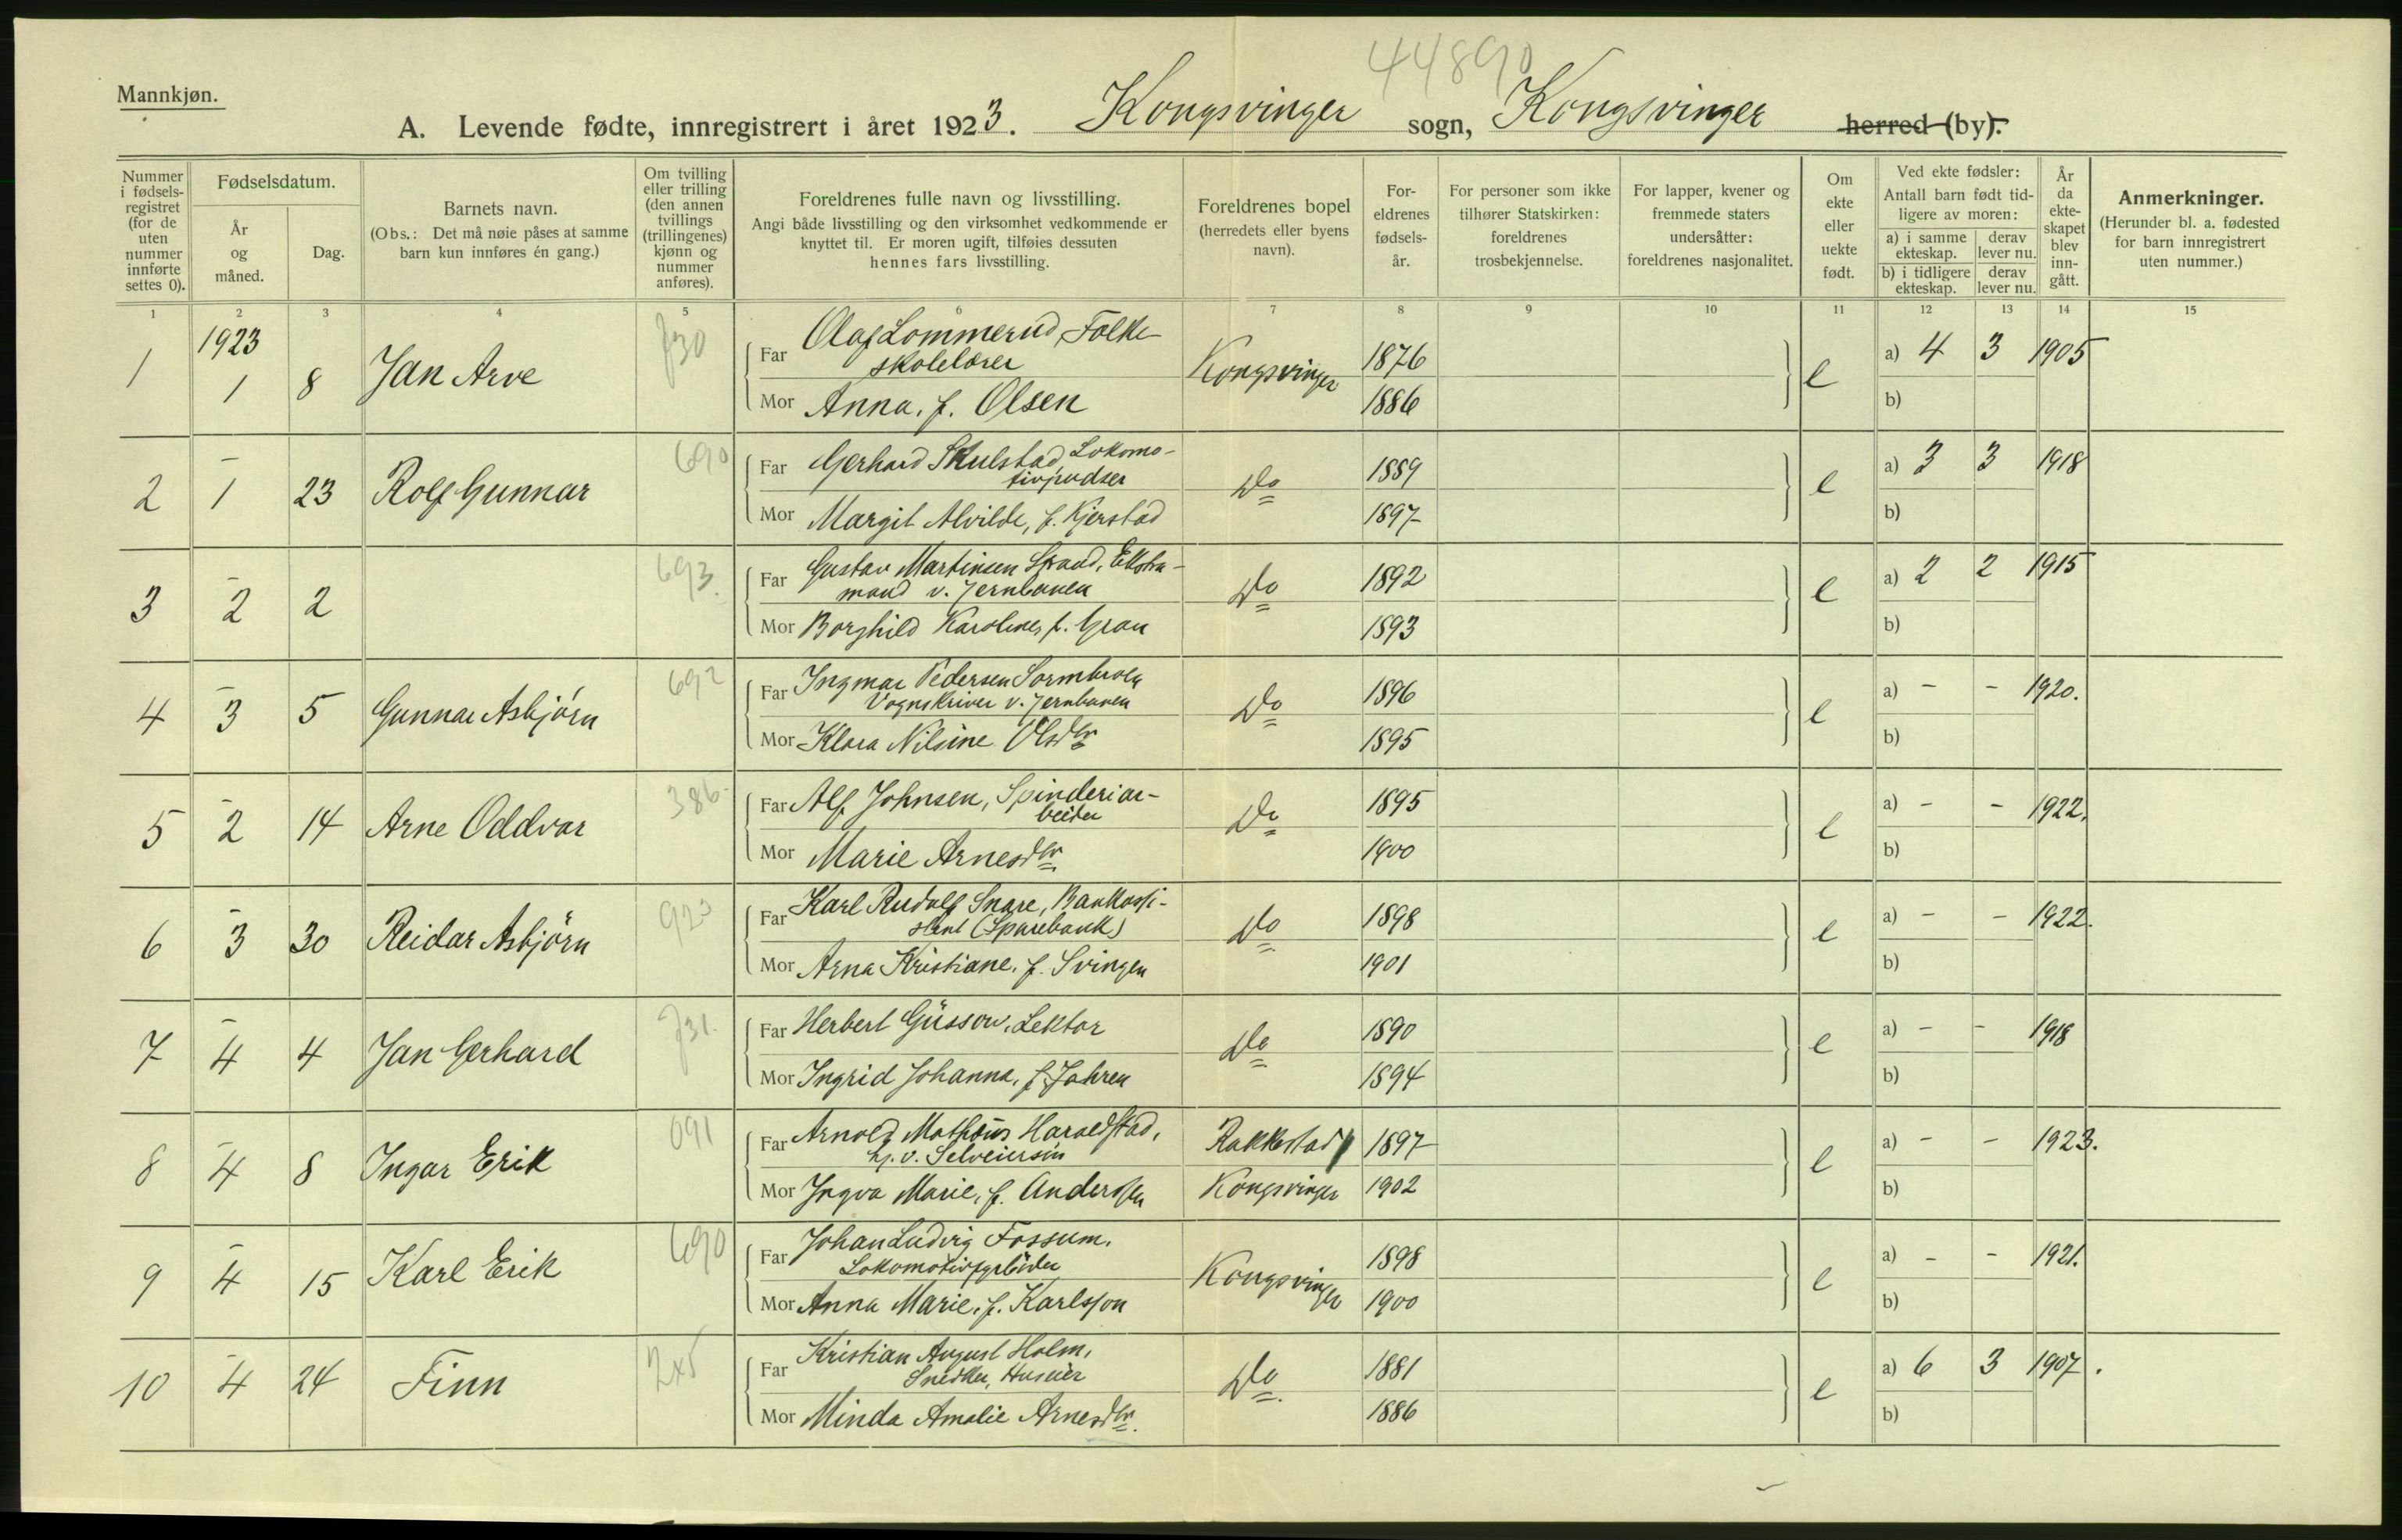 44890
Mannkjøn.
A. Levende fødte, innregistrert i året 1923. Kongsvinger sogn, Kongsvinger herred (by).
Nummer i fødsels-registret (for de uten nummer innførte settes 0).
Fødselsdatum.
År og måned.
Dag.
Barnets navn.
(Obs.: Det må nøie påses at samme barn kun innføres én gang.)
Om tvilling eller trilling (den annen tvillings (trillingenes) kjønn og nummer anføres).
Foreldrenes fulle navn og livsstilling.
Angi både livsstilling og den virksomhet vedkommende er knyttet til. Er moren ugift, tilføies dessuten hennes fars livsstilling.
Foreldrenes bopel (herredets eller byens navn).
For-eldrenes fødsels-år.
For personer som ikke tilhører Statskirken: foreldrenes trosbekjennelse.
For lapper, kvener og fremmede staters undersåtter: foreldrenes nasjonalitet.
Om ekte eller uekte født.
Ved ekte fødsler: Antall barn født tid-ligere av moren:
a) i samme ekteskap. derav lever nu.
b) i tidligere ekteskap. derav lever nu.
År da ekte-skapet blev inn-gått.
Anmerkninger.
(Herunder bl. a. fødested for barn innregistrert uten nummer.)
1 2 3 4 5 6 7 8 9 10 11 12 13 14 15
1923
1 1 8 Jan Arve 730 Far Olaf Lommerud, Folke-
skolelærer Kongsvinger 1876 e a) 4 3 1905
Mor Anna, f. Olsen 1886 b)
2 – 1 23 Rolf Gunnar 690 Far Gerhard Skulstad, Lokomo-
tivpudser Do 1889 e a) 3 3 1918
Mor Margit Alvilde, f. Kjerstad 1897 b)
3 – 2 2 693. Far Gustav Martinsen Strand, Ekstra-
mand v. Jernbanen Do 1892 e a) 2 2 1915
Mor Borghild Karoline, f. Gran 1893 b)
4 – 3 5 Gunnar Asbjörn 692 Far Ingmar Pedersen Sormbroen
Vognskriver v. Jernbanen Do 1896 e a) – – 1920.
Mor Klara Nilsine Olsdtr 1895 b)
5 – 2 14 Arne Oddvar 386. Far Alf Johnsen, Spinderiar-
beider Do 1895 e a) – – 1922.
Mor Marie Arnesdtr. 1900 b)
6 – 3 30 Reidar Asbjörn 923 Far Karl Rudolf Snare, Bankassi-
stent (Sparebank) Do 1898 e a) – – 1922.
Mor Arna Kristiane, f. Svingen 1901 b)
7 – 4 4 Jan Gerhard 731. Far Herbert Güssow, Lektor Do 1890 e a) – – 1918
Mor Ingrid Johanna, f. Jahren 1894 b)
8 – 4 8 Ingar Erik 091 Far Arnold Mathæus Haraldstad,
hj. v. Selveiersin Rakkestad 1897 e a) – – 1923.
Mor Yngva Marie, f. Anderssen Kongsvinger 1902 b)
9 – 4 15 Karl Erik 690 Far Johan Ludvig Fossum,
Lokomotivfyrböder Kongsvinger 1898 e a) – – 1921.
Mor Anna Marie, f. Karlsson 1900 b)
10 – 4 24 Finn 245 Far Kristian August Holm,
Snedker, Huseier Do. 1881 e a) 6 3 1907.
Mor Minda Amalie Arnesdtr. 1886 b)